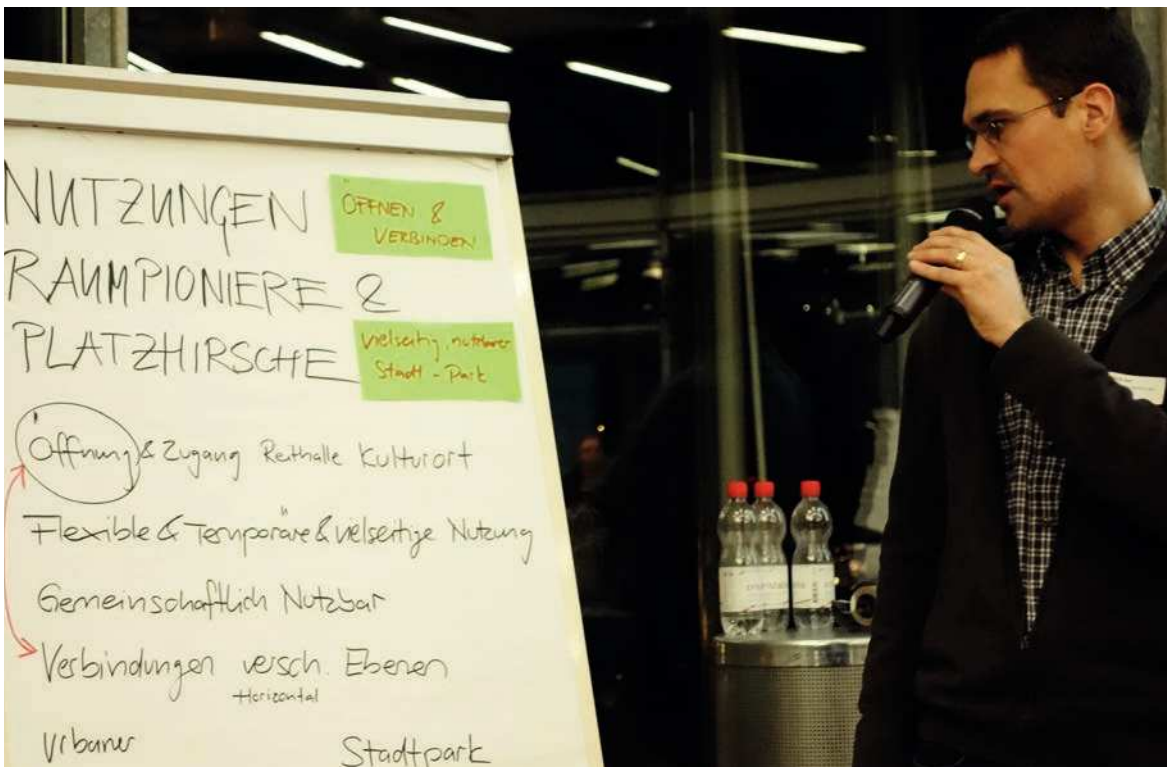 NUTZUNGEN
RAUMPIONIERE &
PLATZHIRSCHE
ÖFFNEN &
VERBINDEN
vielseitig nutzbarer
Stadt - Park
Öffnung & Zugang Reithalle Kulturort
Flexible & Temporäre & vielseitige Nutzung
Gemeinschaftlich Nutzbar
Verbindungen versch. Ebenen
Horizontal
Urbaner Stadtpark